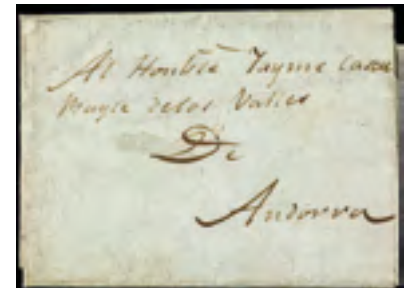 Al Honble Jayme Casa
de los Valles
De
Andorra